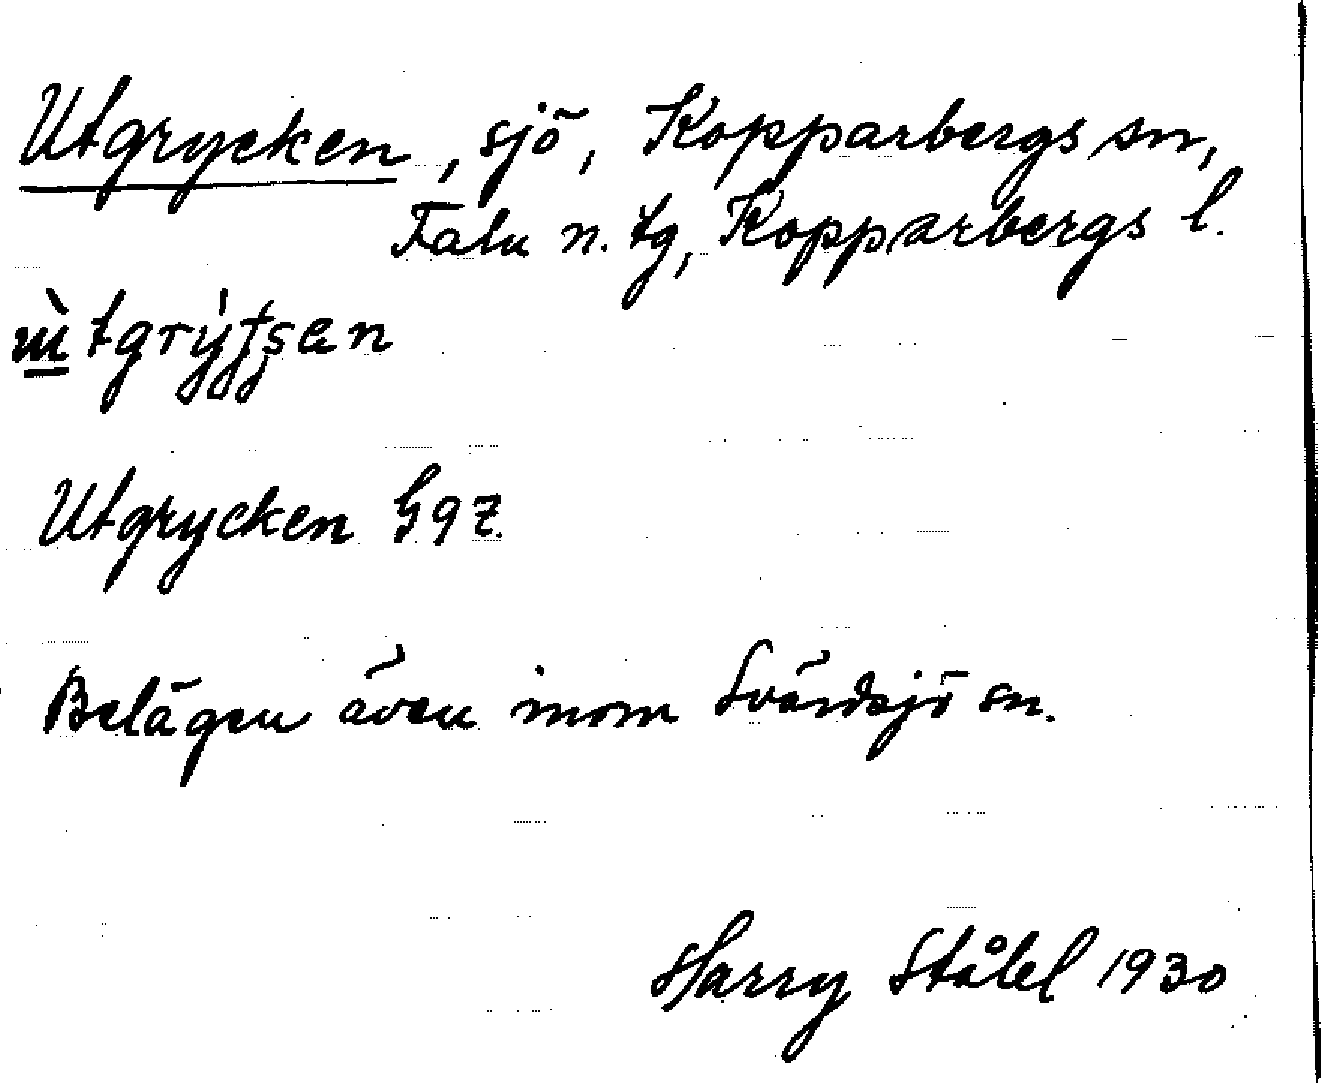 Utgrycken, sjö, Kopparbergs sn,
Falu n. tg, Kopparbergs l.
Utgrycken G9Z.
Belägen även inom Svärdsjö sn.
Harry Ståhl 1930